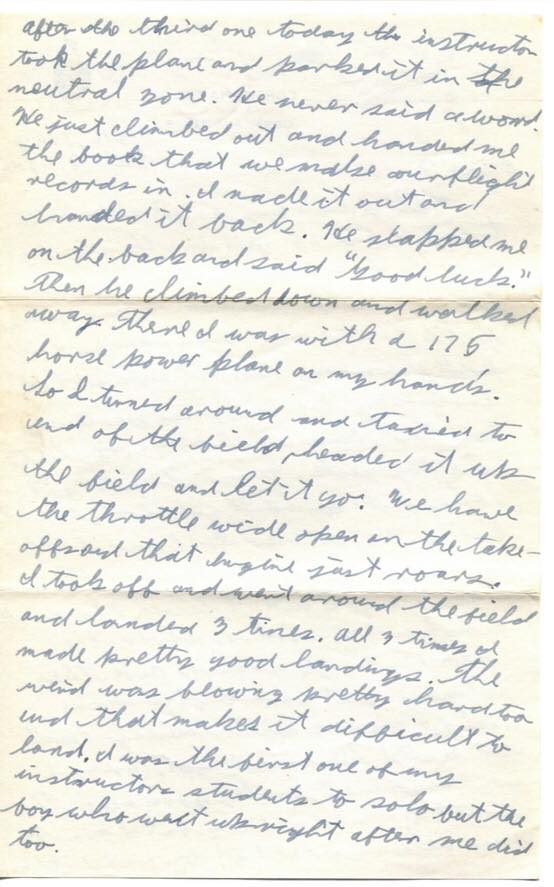 after the third one today the instructor
took the plane and parked it in the
neutral zone. He never said a word.
He just climbed out and handed me
the book that we make our flight
records in. I made it out and
handed it back. He slapped me
on the back and said "Good luck."
Then he climbed down and walked
away. There I was with a 175
horse power plane on my hands.
So I turned around and taxied to
end of the field, headed it up
the field and let it go. We have
the throttle wide open on the take-
offs and that engine just roars.
I took off and went around the field
and landed 3 times. All 3 times I
made pretty good landings. The
wind was blowing pretty hard too
and that makes it difficult to
land. I was the first one of my
instructors students to solo but the
boy who went up right after me did
too.